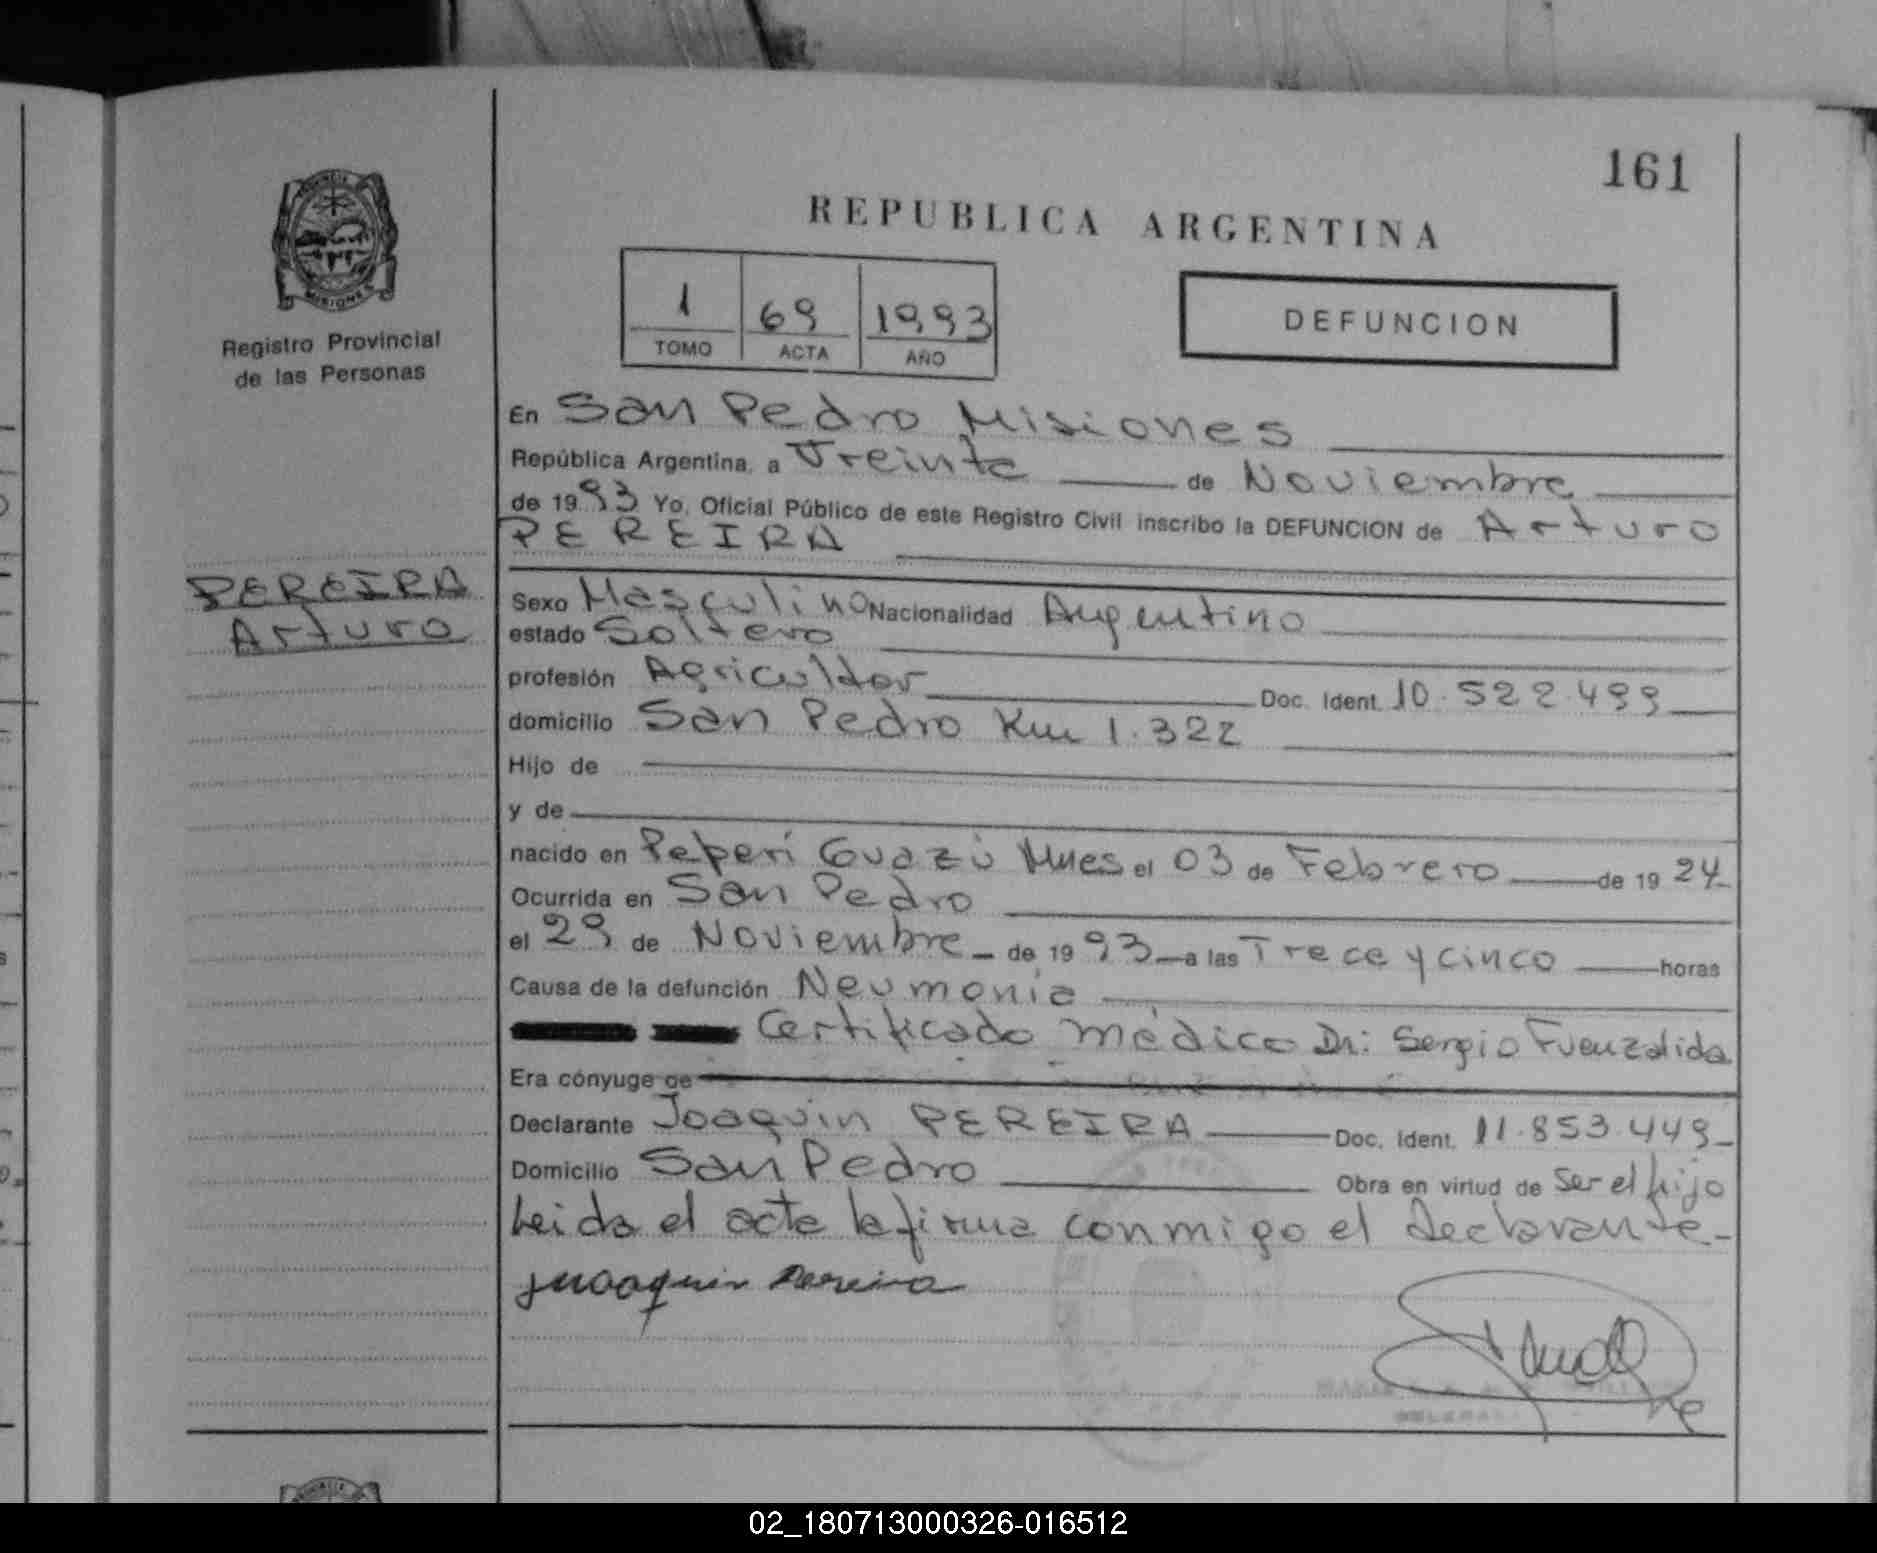 161
REPUBLICA ARGENTINA
PROVINCIA
MISIONES
Registro Provincial
de las Personas
1 69 1993
TOMO ACTA AÑO
DEFUNCION
En San Pedro Misiones
República Argentina, a Treinta de Noviembre
de 1993 Yo, Oficial Público de este Registro Civil inscribo la DEFUNCION de Arturo
PEREIRA
PEREIRA
Arturo
Sexo Masculino Nacionalidad Argentino
estado Soltero
profesión Agricultor Doc. Ident. 10.522.499
domicilio San Pedro Km 1.322
Hijo de
y de
nacido en Peperí Guazú Mnes el 03 de Febrero de 1924
Ocurrida en San Pedro
el 29 de Noviembre de 1993 a las Trece y cinco horas
Causa de la defunción Neumonia
Certificado médico Dr: Sergio Fuenzalida
Era cónyuge de
Declarante Joaquin PEREIRA Doc. Ident. 11.853.449
Domicilio San Pedro Obra en virtud de ser el hijo
Leida el acta la firma conmigo el declarante
Juoaquin Pereira
02_180713000326-016512